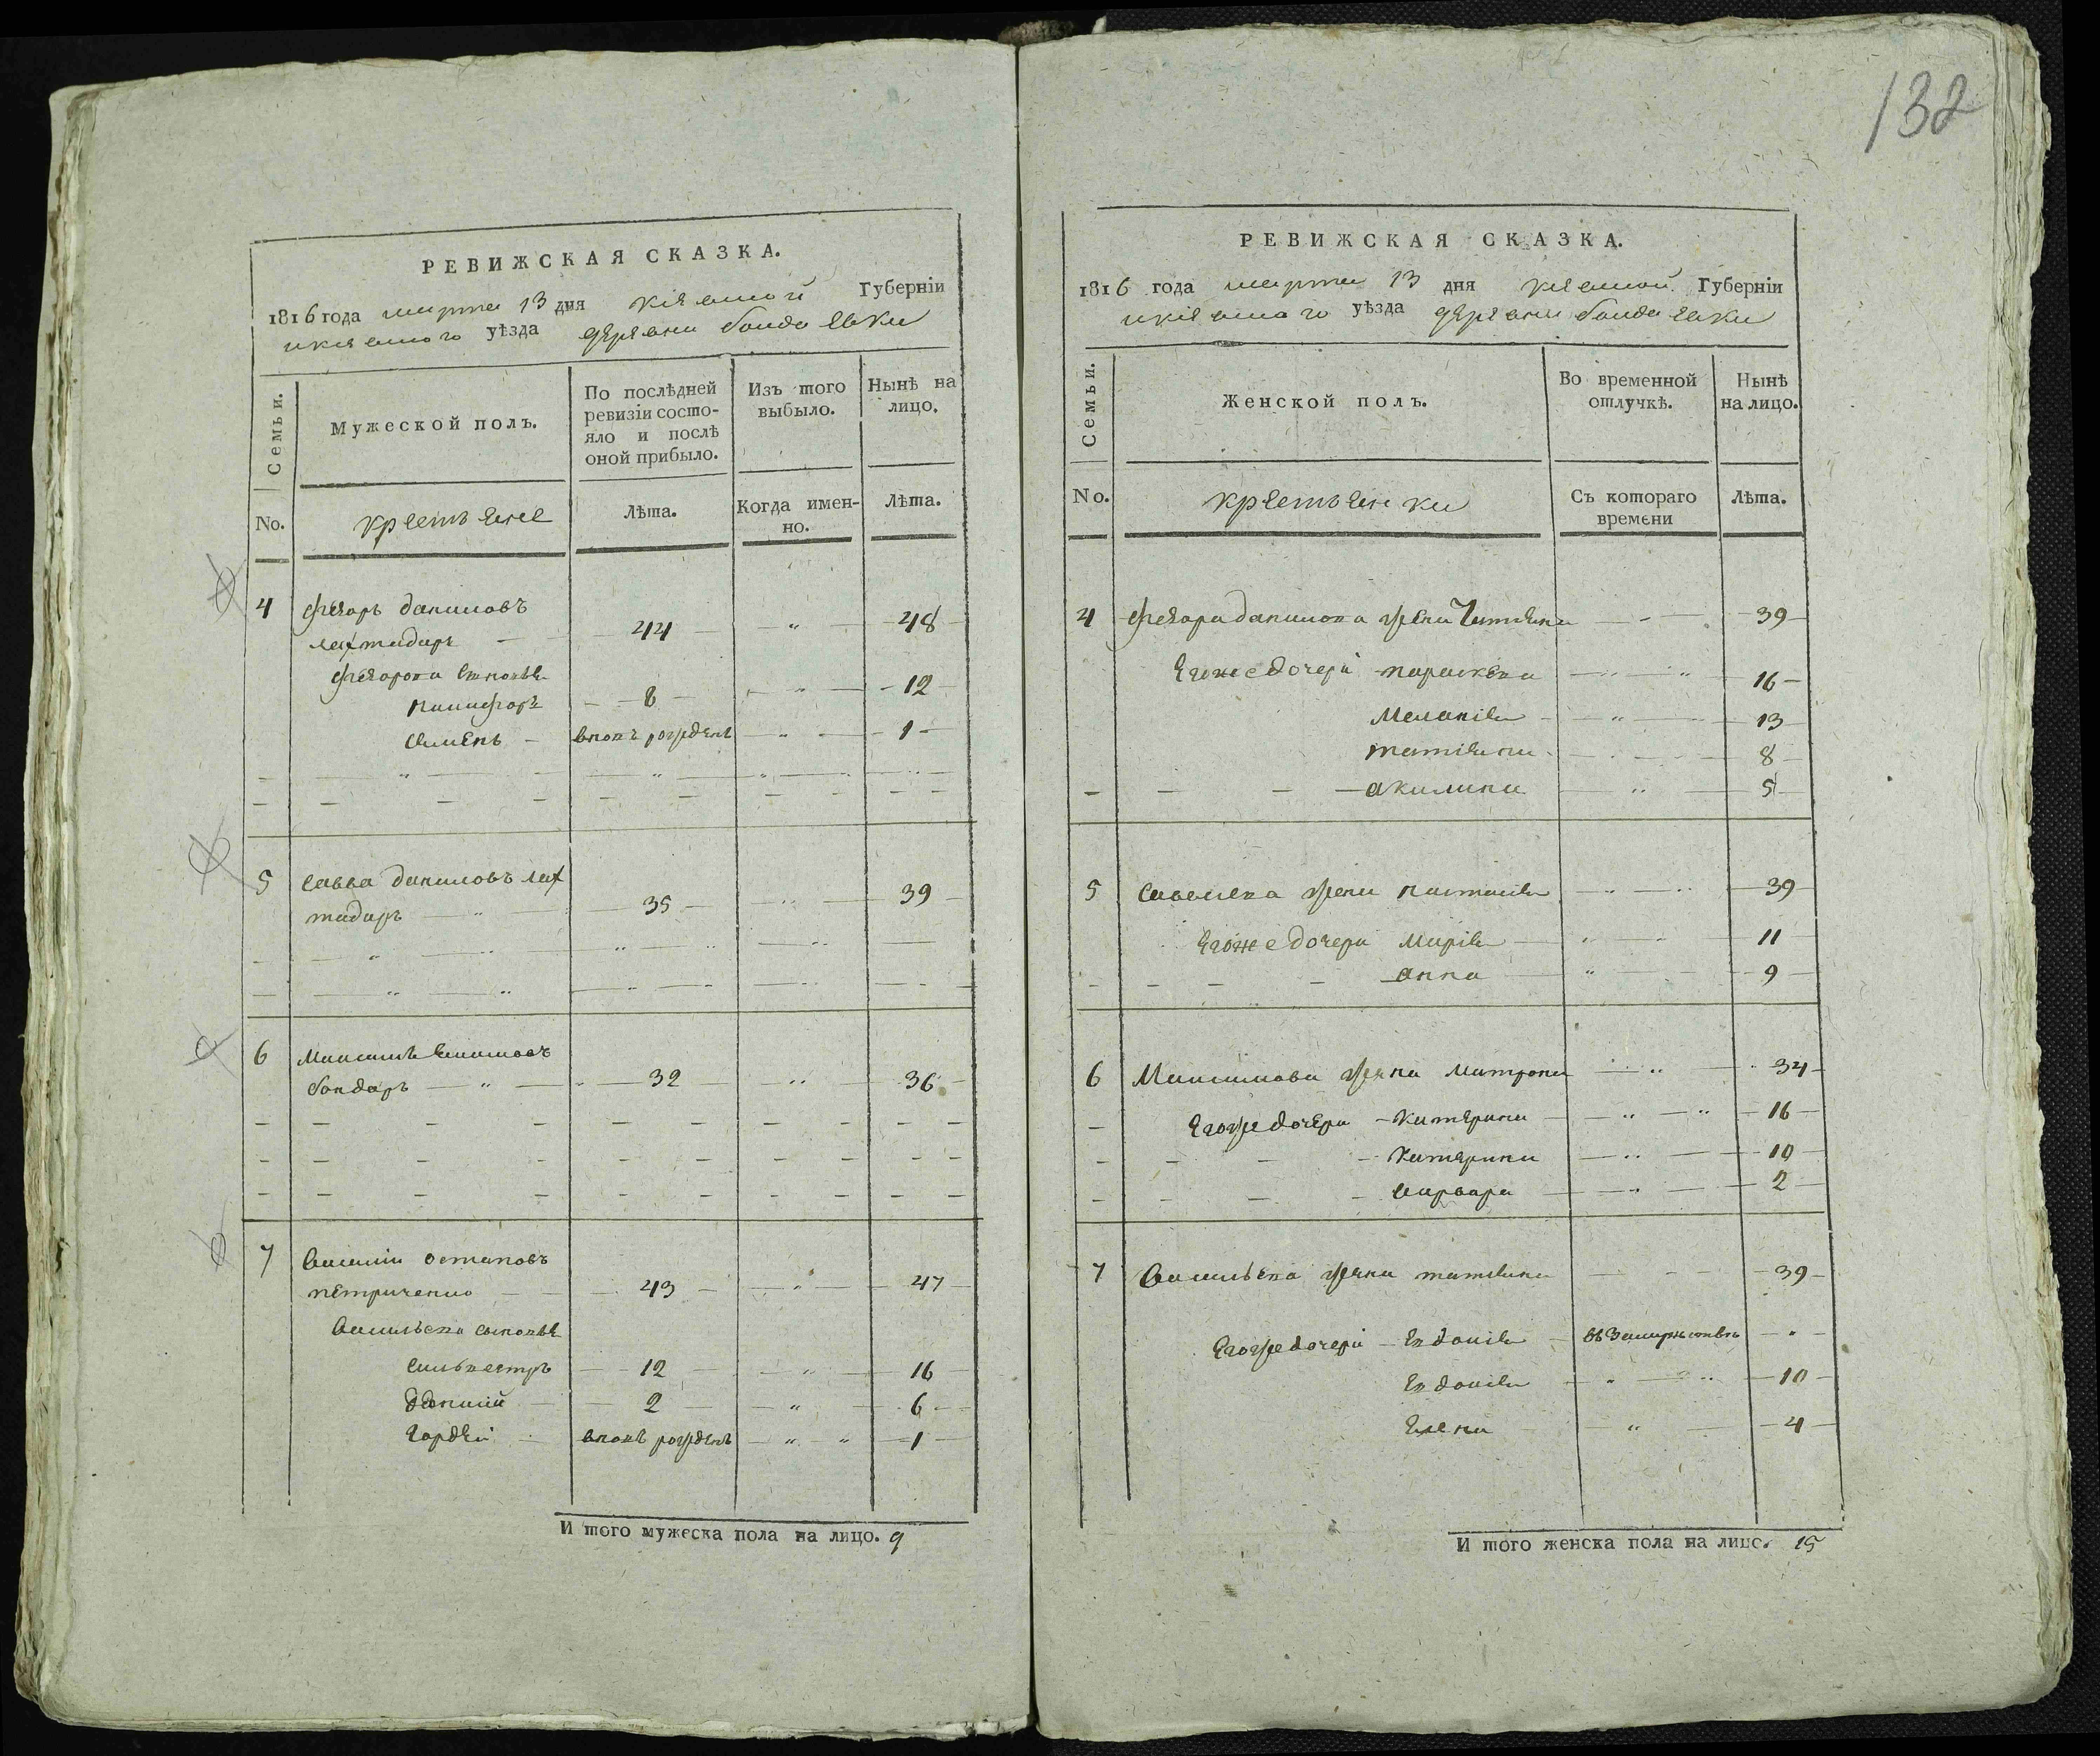 РЕВИЖСКАЯ СКАЗКА.
1816 года марта 13 дня Киевской Губерніи
и Киевского уѣзда деревни бондаревки
Семьи.
Мужеской полъ.
По послѣдней
ревизіи состо-
яло и послѣ
оной прибыло.
Изъ того
выбыло.
Нынѣ на
лицо.
No.
крестьяне
Лѣта.
Когда имен-
но.
Лѣта.
4 Федоръ даниловъ
44 48
Федорова сыновья
никифоръ 8 12
семенъ вновь рожденъ 1
5 Савва даниловъ
35 39
6
бондаръ 32 36
7 Василій остаповъ
петриченко 43 47
Васильева сыновья
сильвестръ 12 16
2 6
гордей вновь рожденъ 1
И того мужеска пола на лицо. 9
132
РЕВИЖСКАЯ СКАЗКА.
1816 года марта 13 дня Киевской Губерніи
и Киевского уѣзда деревни бондаревки
Семьи.
Женской полъ.
Во временной
отлучкѣ.
Нынѣ
на лицо.
No.
крестьянки
Съ котораго
времени
Лѣта.
4 Федора данилова жена 39
Егоже дочери параскева 16
Меланія 13
татіяна 8
акилина 5
5 жена настасія 39
Егоже дочери Марія 11
анна 9
6 Максимова жена матрона 34
Егоже дочери катерина 16
катерина 10
варвара 2
7 Васильева жена татіяна 39
Егоже дочери Евдокія въ замужествѣ
Евдокія 10
Елена 4
И того женска пола на лицо. 15